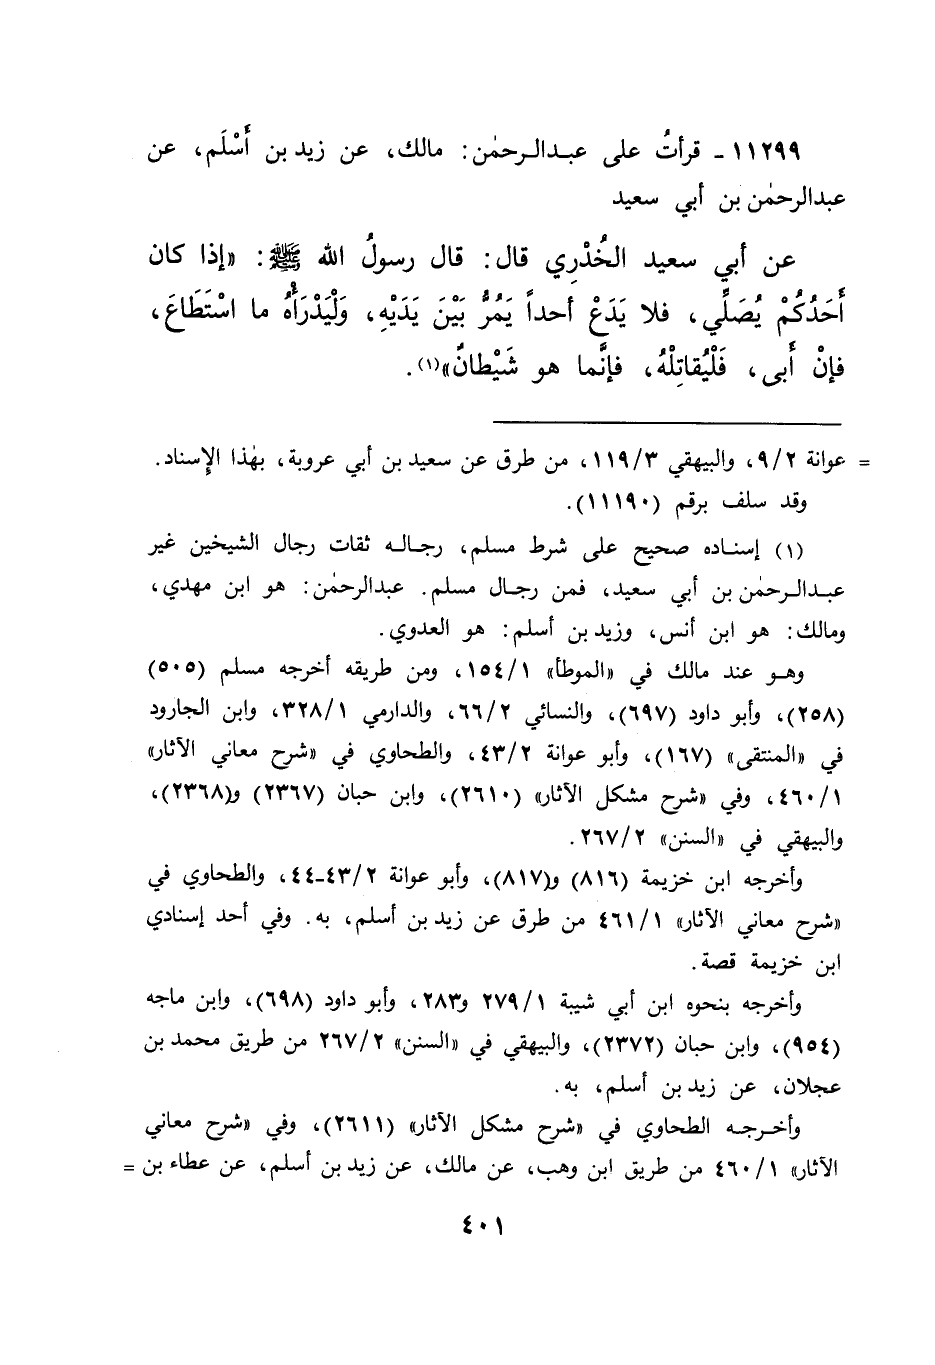 ١١٢٩٩ - قرأتُ على عبدالرحمٰن: مالك، عن زيد بن أَسْلَم، عن
عبدالرحمٰن بن أبي سعيد
عن أبي سعيد الخُدْرِي قال: قال رسولُ الله ﷺ: «إذا كان
أَحَدُكُمْ يُصَلِّي، فلا يَدَعْ أحداً يَمُرُّ بَيْنَ يَدَيْهِ، وَلْيَدْرَأْهُ ما اسْتَطَاعَ،
فإنْ أَبى، فَلْيُقاتِلْهُ، فإنَّما هو شَيْطانٌ»(١).
= عوانة ٩/٢، والبيهقي ١١٩/٣، من طرق عن سعيد بن أبي عروبة، بهٰذا الإسناد.
وقد سلف برقم (١١١٩٠).
(١) إسناده صحيح على شرط مسلم، رجاله ثقات رجال الشيخين غير
عبدالرحمٰن بن أبي سعيد، فمن رجال مسلم. عبدالرحمٰن: هو ابن مهدي،
ومالك: هو ابن أنس، وزيد بن أسلم: هو العدوي.
وهو عند مالك في «الموطأ» ١٥٤/١، ومن طريقه أخرجه مسلم (٥٠٥)
(٢٥٨)، وأبو داود (٦٩٧)، والنسائي ٦٦/٢، والدارمي ٣٢٨/١، وابن الجارود
في «المنتقى» (١٦٧)، وأبو عوانة ٤٣/٢، والطحاوي في «شرح معاني الآثار»
٤٦٠/١، وفي «شرح مشكل الآثار» (٢٦١٠)، وابن حبان (٢٣٦٧) و(٢٣٦٨)،
والبيهقي في «السنن» ٢٦٧/٢.
وأخرجه ابن خزيمة (٨١٦) و(٨١٧)، وأبو عوانة ٤٣/٢-٤٤، والطحاوي في
«شرح معاني الآثار» ٤٦١/١ من طرق عن زيد بن أسلم، به. وفي أحد إسنادي
ابن خزيمة قصة.
وأخرجه بنحوه ابن أبي شيبة ٢٧٩/١ و٢٨٣، وأبو داود (٦٩٨)، وابن ماجه
(٩٥٤)، وابن حبان (٢٣٧٢)، والبيهقي في «السنن» ٢٦٧/٢ من طريق محمد بن
عجلان، عن زيد بن أسلم، به.
وأخرجه الطحاوي في «شرح مشكل الآثار» (٢٦١١)، وفي «شرح معاني
الآثار» ٤٦٠/١ من طريق ابن وهب، عن مالك، عن زيد بن أسلم، عن عطاء بن =
٤٠١